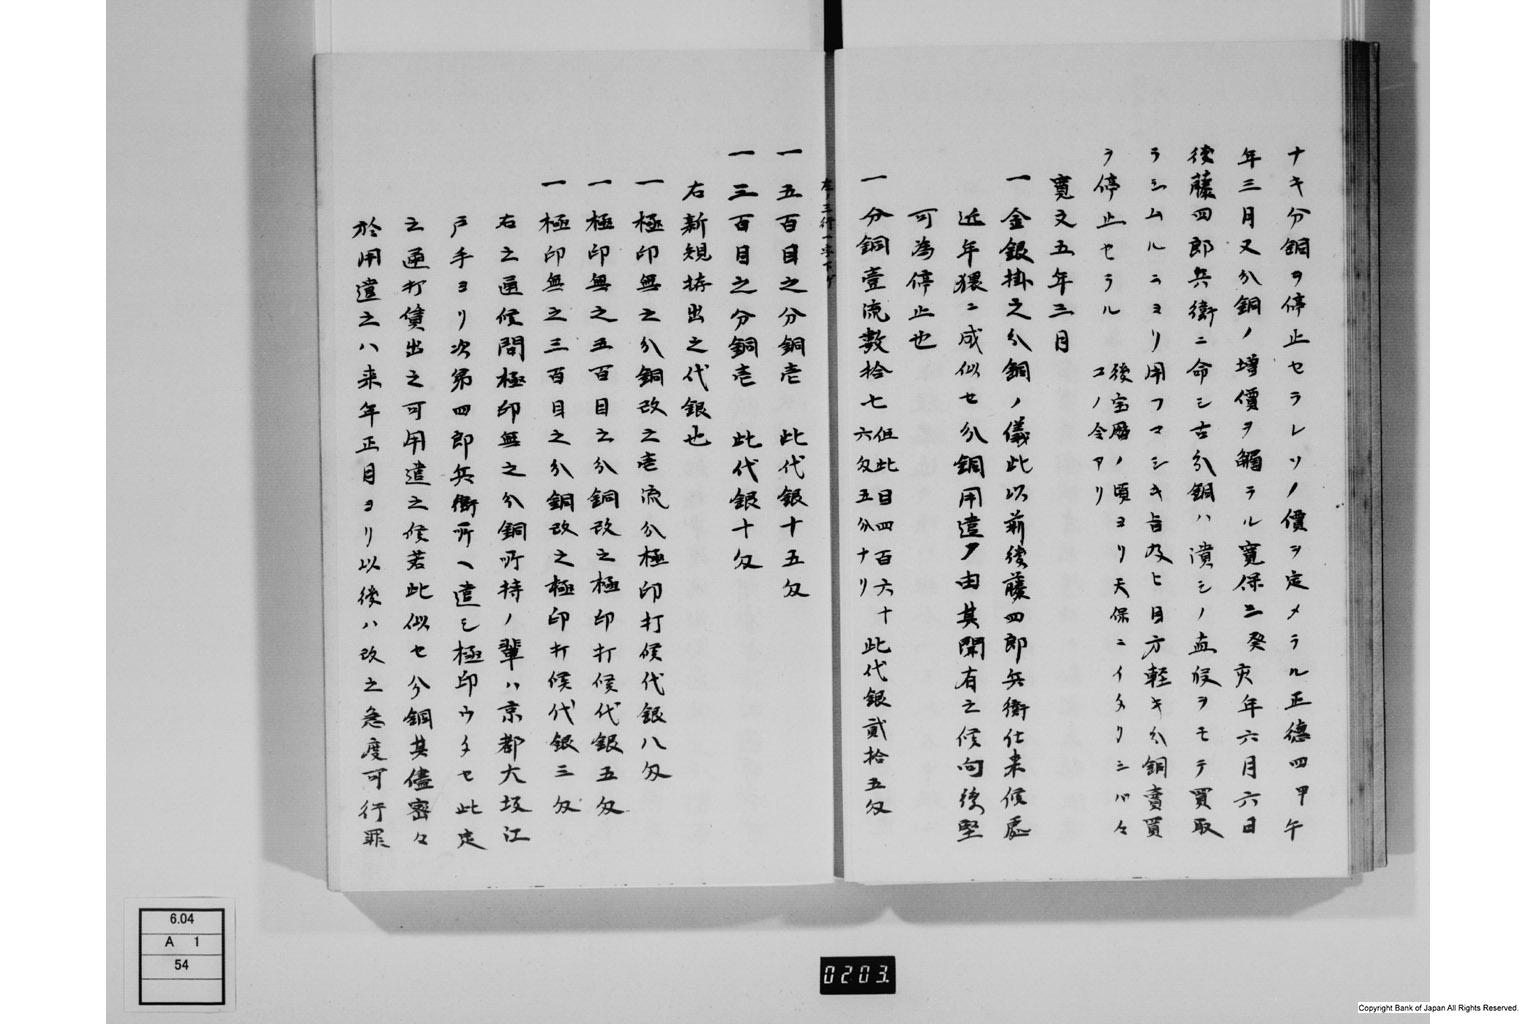 ナキ分銅ヲ停止セラレソノ價ヲ定メラル正德四甲午
年三月又分銅ノ増價ヲ觸ラル寛保三癸亥年六月六日
後藤四郎兵衛ニ命シ古分銅ハ潰シノ直段ヲモテ買取
ラシムルニヨリ用フマシキ旨及ヒ目方軽キ分銅賣買
ヲ停止セラル 後宝暦ノ頃ヨリ天保ニイタリシバ々
コノ令アリ
寛文五年三月
一金銀掛之分銅ノ儀此以前後藤四郎兵衛仕来候處
近年猥ニ成似セ分銅用遣ヲ由其聞有之候向後堅
可為停止也
一分銅壹流數拾七 但此目四百六十
六匁五分ナリ 此代銀貳拾五匁
左三行一字下ケ
一五百目之分銅壱 此代銀十五匁
一三百目之分銅壱 此代銀十匁
右新規持出之代銀也
一極印無之分銅改之壱流分極印打候代銀八匁
一極印無之五百目之分銅改之極印打候代銀五匁
一極印無之三百目之分銅改之極印打候代銀三匁
右之通候間極印無之分銅所持ノ輩ハ京都大坂江
戸手ヨリ次第四郎兵衛所ヘ遣シ極印ウタセ此定
之通打賃出之可用遣之候若此似セ分銅其儘密々
於用遣之ハ来年正月ヨリ以後ハ改之急度可行罪
6.04
A 1
54
0203.
Copyright Bank of Japan All Rights Reserved.